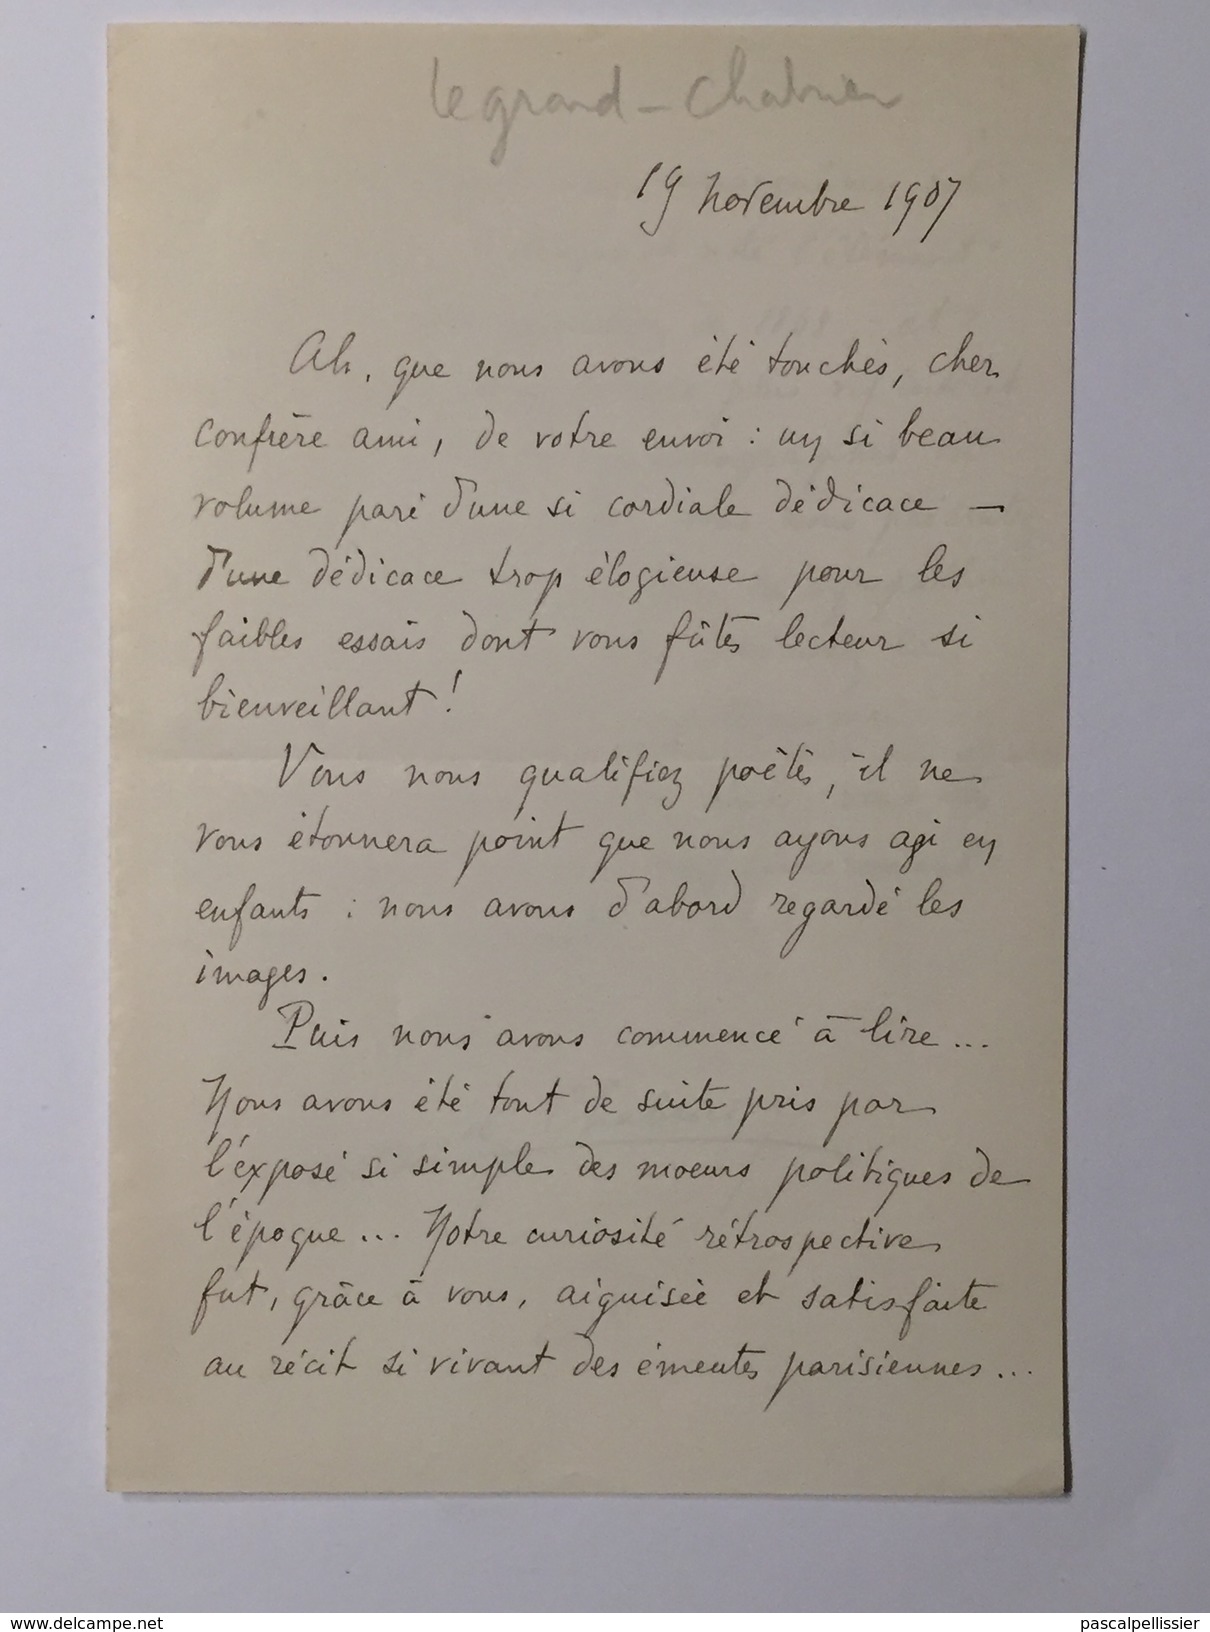 Legrand-Chabrier
19 novembre 1907
Ah, que nous avons été touchés, cher
confrère ami, de votre envoi : un si beau
volume paré d'une si cordiale dédicace —
d'une dédicace trop élogieuse pour les
faibles essais dont vous fûtes lecteur si
bienveillant !
Vous nous qualifiez poètes, il ne
vous étonnera point que nous ayons agi en
enfants : nous avons d'abord regardé les
images.
Puis nous avons commencé à lire...
Nous avons été tout de suite pris par
l'exposé si simple des moeurs politiques de
l'époque... Notre curiosité rétrospective
fut, grâce à vous, aiguisée et satisfaite
au récit si vivant des émeutes parisiennes...
www.delcampe.net
pascalpellissier